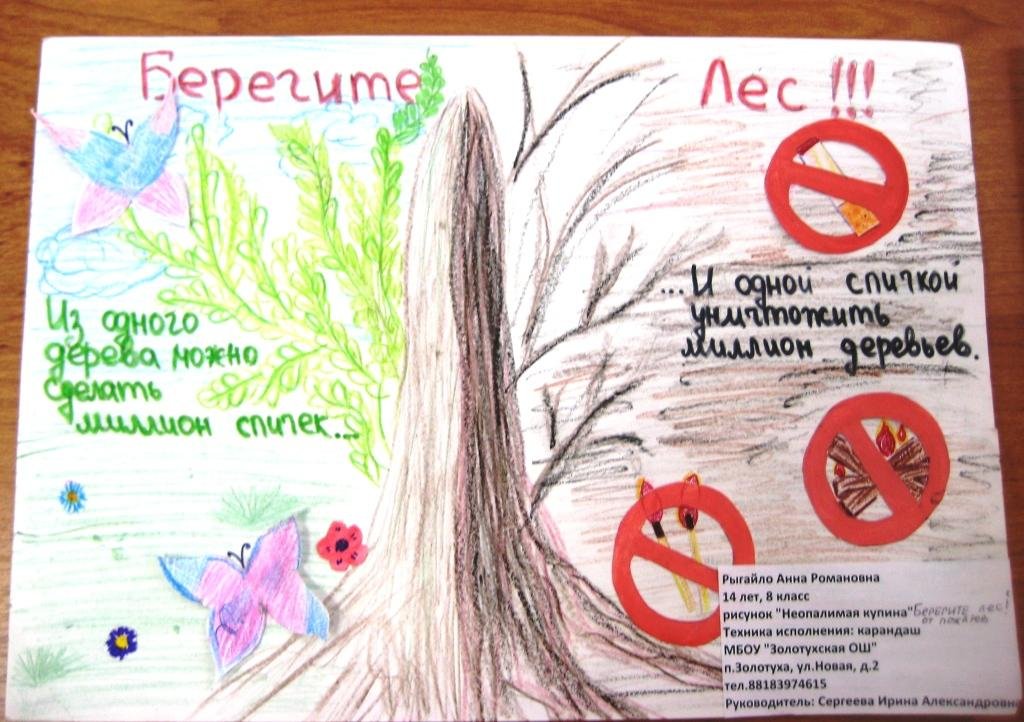 Берегите Лес !!!
Из одного
дерева можно
сделать
миллион спичек...
...И одной спичкой
уничтожить
миллион деревьев.
Рыгайло Анна Романовна
14 лет, 8 класс
рисунок "Неопалимая купина" Берегите лес!
от пожаров
Техника исполнения: карандаш
МБОУ "Золотухская ОШ"
п.Золотуха, ул.Новая, д.2
тел.88183974615
Руководитель: Сергеева Ирина Александровн